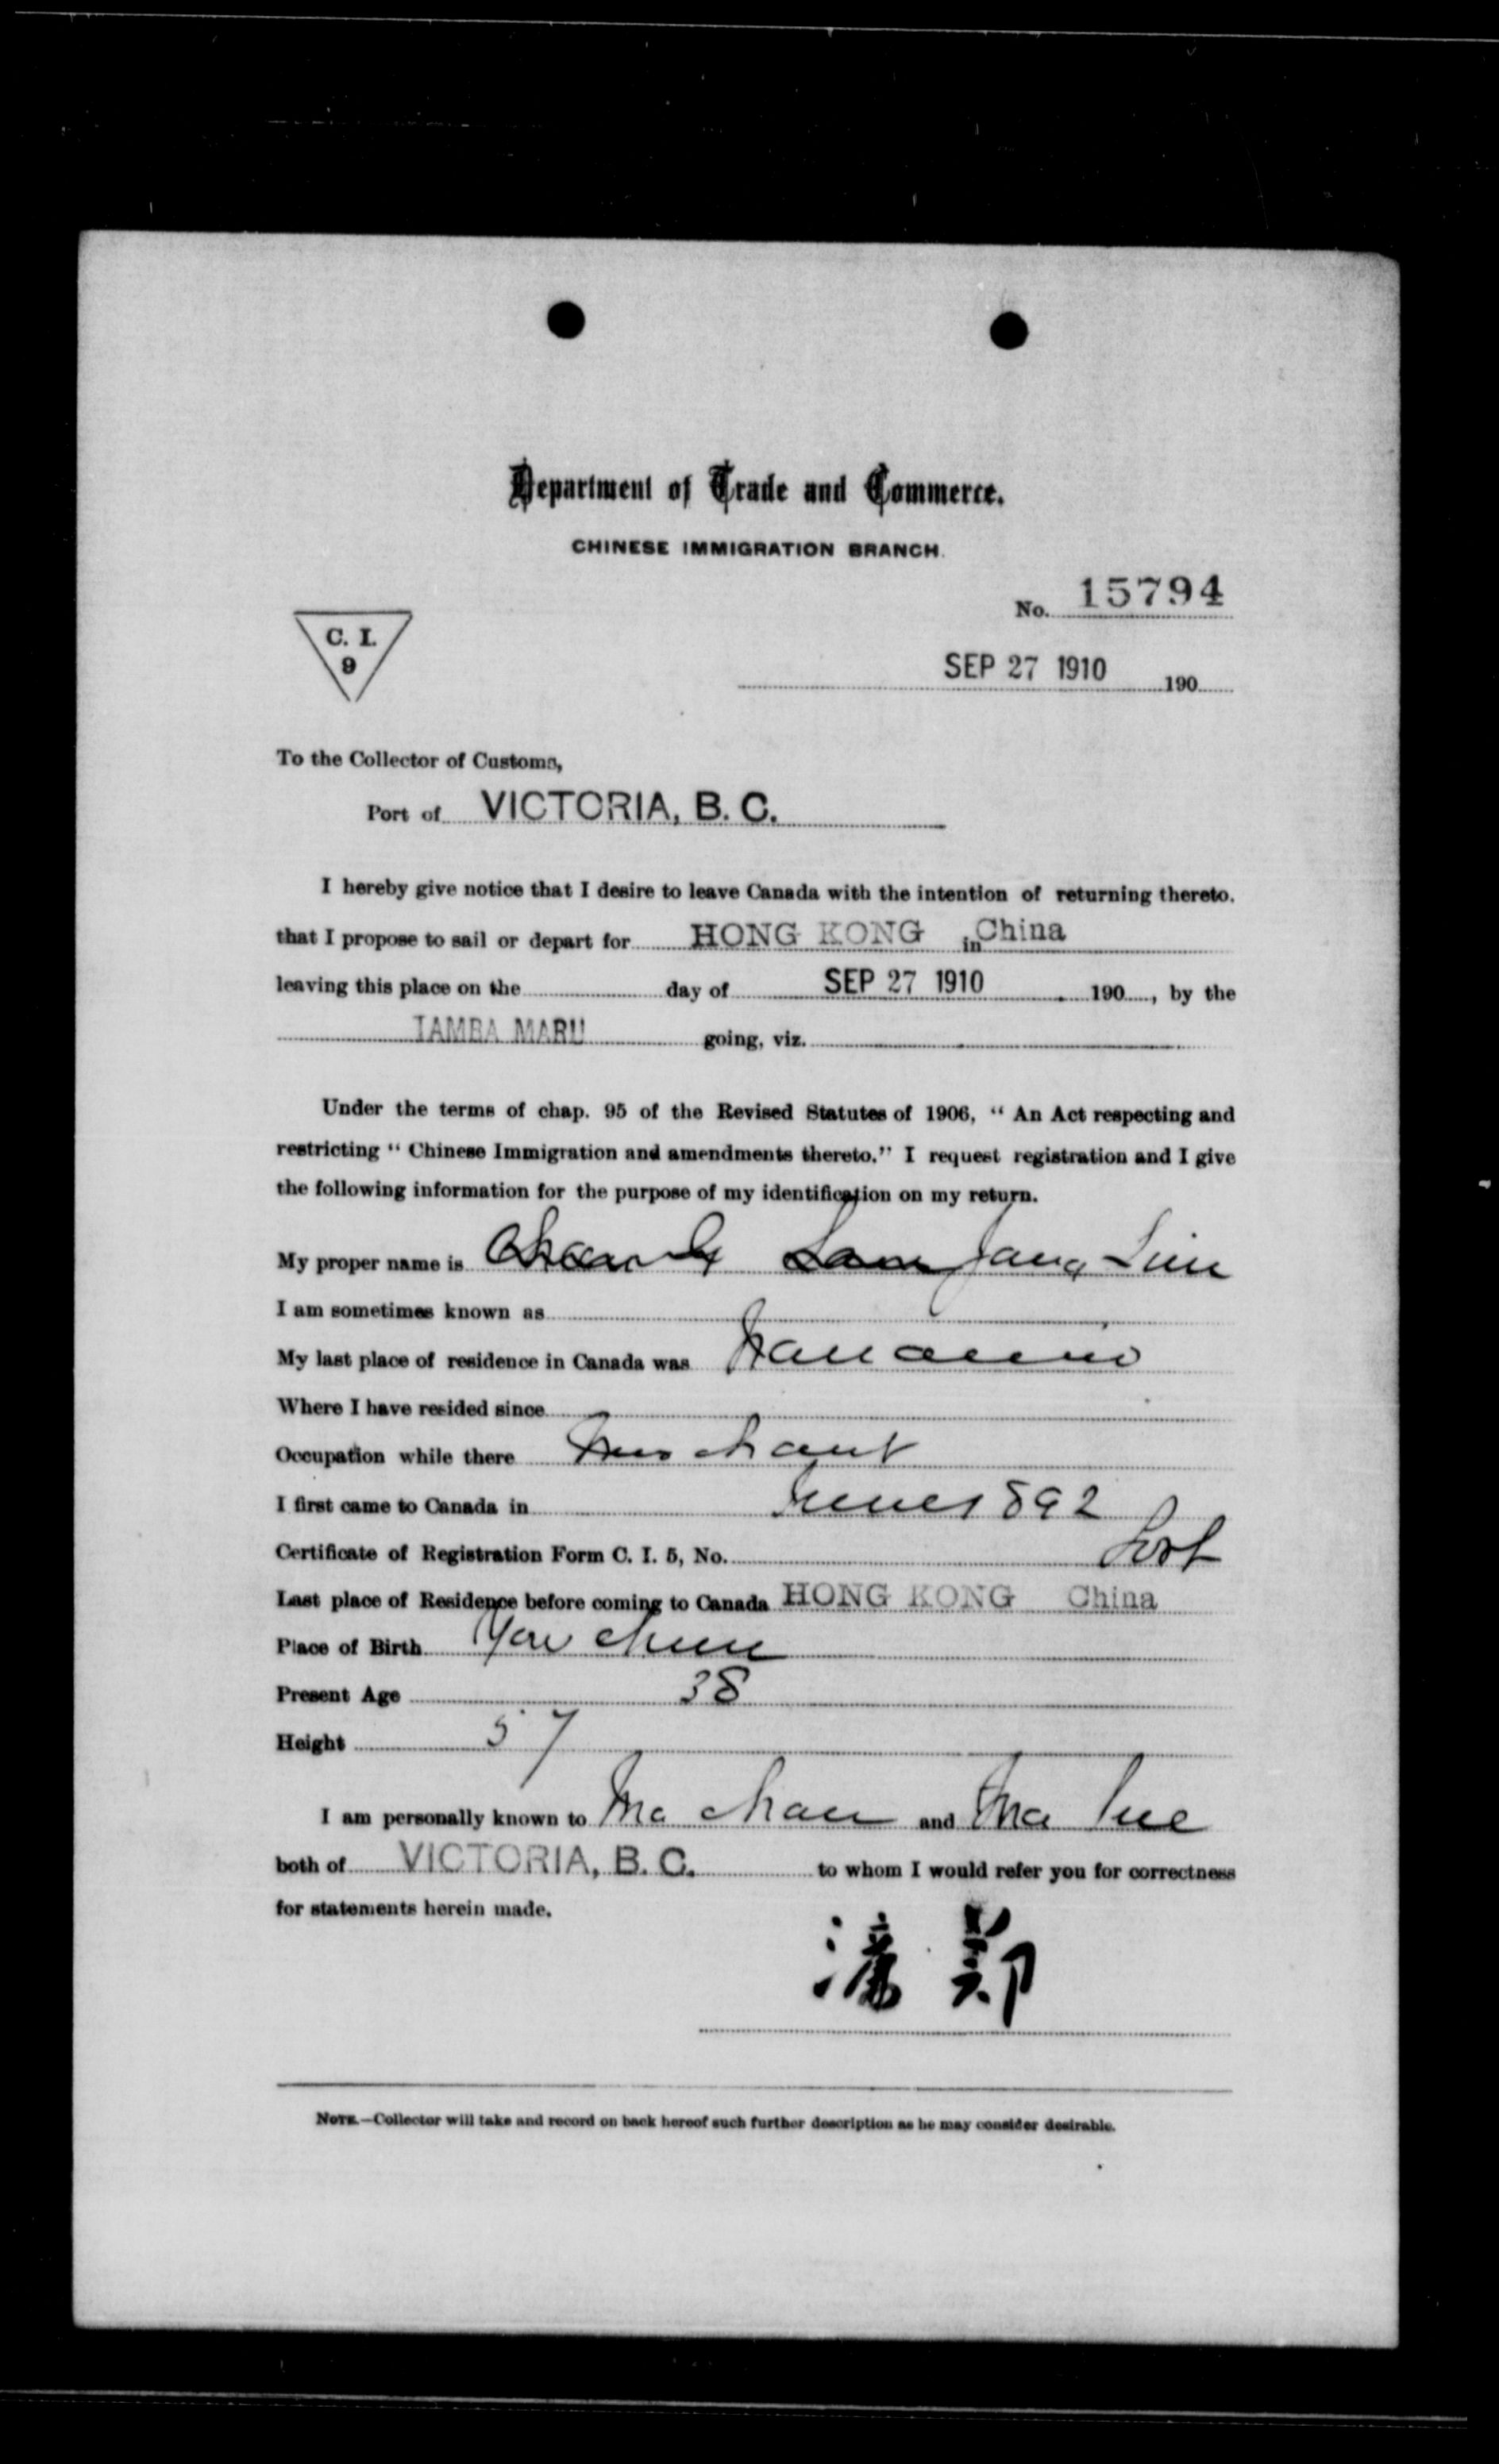 Department of Trade and Commerce.
CHINESE IMMIGRATION BRANCH.
No. 15794
C. I.
9
SEP 27 1910 190
To the Collector of Customs,
Port of VICTORIA, B. C.
I hereby give notice that I desire to leave Canada with the intention of returning thereto.
that I propose to sail or depart for HONG KONG in China
leaving this place on the day of SEP 27 1910 190 , by the
TAMBA MARU going, viz.
Under the terms of chap. 95 of the Revised Statutes of 1906, “ An Act respecting and
restricting “ Chinese Immigration and amendments thereto.” I request registration and I give
the following information for the purpose of my identification on my return.
My proper name is
I am sometimes known as
My last place of residence in Canada was Nanaimo
Where I have resided since
Occupation while there Merchant
I first came to Canada in June 1892
Certificate of Registration Form C. I. 5, No. Lost
Last place of Residence before coming to Canada HONG KONG China
Place of Birth
Present Age 38
Height 5 7
I am personally known to Ma Chan and Ma
both of VICTORIA, B. C. to whom I would refer you for correctness
for statements herein made.
鄭
NOTE.—Collector will take and record on back hereof such further description as he may consider desirable.